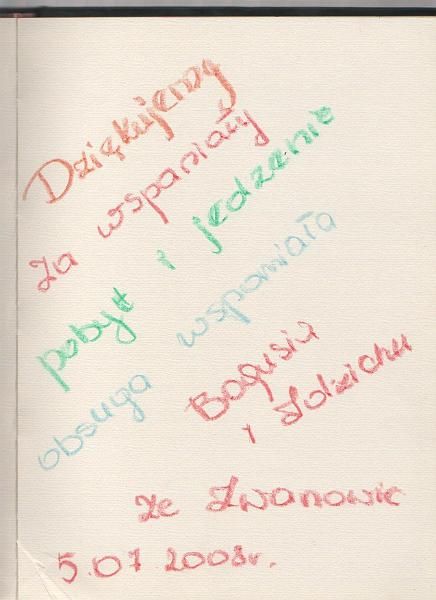 Dziękujemy
za wspaniały
pobyt i jedzenie
obsuga wspomiała
Bogusia
i Zdzichu
ze Iwanowic
5.07 2008r.